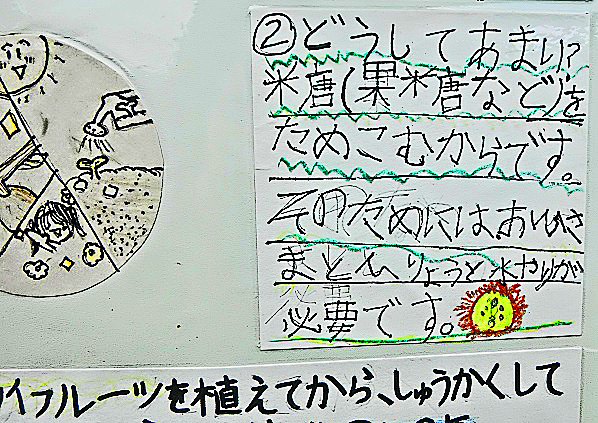 ②どうしてあまい?
糖(果糖など)を
ためこむからです。
そのためにはおひさ
まとひりょうと水やりが
必要です。
イフルーツを植えてから、しゅうかくして